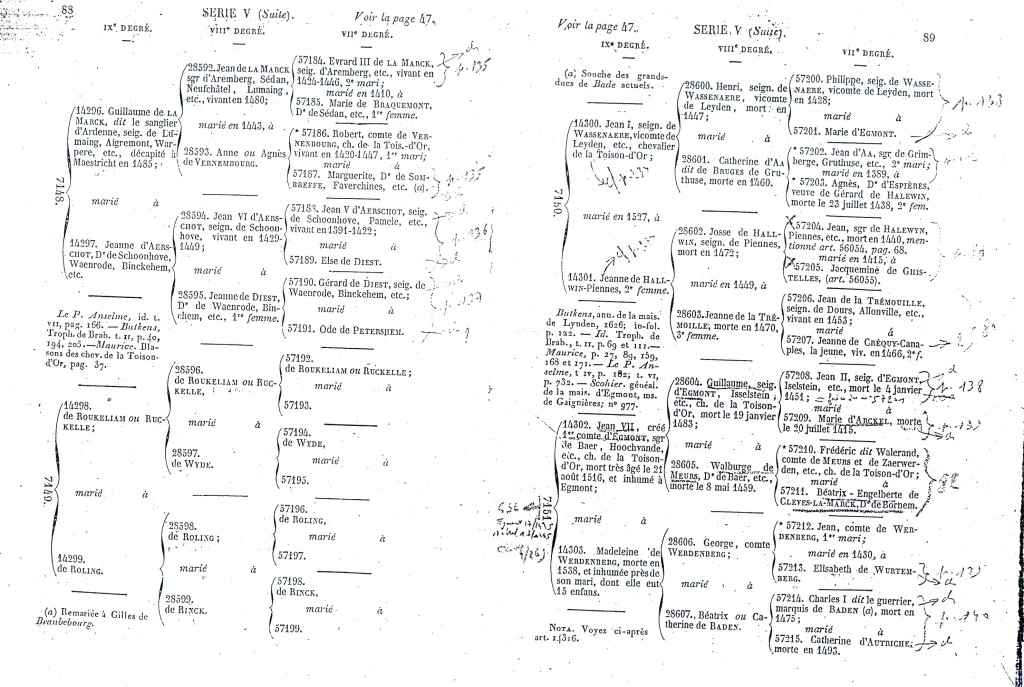 88
SERIE V (Suite).
Voir la page 47.
IXe DEGRÉ.
VIIIe DEGRÉ.
VIIe DEGRÉ.
7148.
14296. Guillaume de LA
MARCK, dit le sanglier
d'Ardenne, seig. de Lu-
maing, Aigremont, War-
pere, etc., décapité à
Maestricht en 1485;
marié à
14297. Jeanne d'AERS-
CHOT, De de Schoonhove,
Waenrode, Binckehem,
etc.
Le P. Anselme, id. t.
VII, pag. 166. — Butkens,
Troph. de Brab. t. II, p. 40,
194, 205. — Maurice. Bla-
sons des chev. de la Toison-
d'Or, pag. 37.
7149.
14298.
de ROUKELIAM OU RUC-
KELLE;
marié à
14299.
de ROLING.
(a) Remariée à Gilles de
Branbebourg.
28592. Jean de LA MARCK
sgr d'Aremberg, Sédan,
Neufchâtel, Lumaing,
etc., vivant en 1480;
marié en 1443, à
28593. Anne ou Agnès
de VERNEMBOURG.
28594. Jean VI d'AERS-
CHOT, seign. de Schoon-
hove, vivant en 1429-
1449;
marié à
28595. Jeanne de DIEST,
De de Waenrode, Bin-
chem, etc., 1re femme.
28596.
de ROUKELIAM OU RUC-
KELLE,
marié à
28597.
de WYDE.
28598.
de ROLING;
marié à
28599.
de RINCK.
57184. Evrard III de LA MARCK,
seig. d'Aremberg, etc., vivant en
1424-1446, 2e mari;
marié en 1410, à
57185. Marie de BRAQUEMONT,
De de Sédan, etc., 1re femme.
p. 135
* 57186. Robert, comte de VER-
NENBOURG, ch. de la Tois.-d'Or,
vivant en 1420-1447, 1er mari;
marié à
57187. Marguerite, De de SOM-
BREFFE, Faverchines, etc. (a).
p. 135
57188. Jean V d'AERSCHOT, seig.
de Schoonhove, Pamele, etc.,
vivant en 1391-1422;
marié à
57189. Else de DIEST.
p. 136
57190. Gérard de DIEST, seig. de
Waenrode, Binckehem, etc.;
marié à
57191. Ode de PETERSHEM.
57192.
de ROUKELIAM OU RUCKELLE;
marié à
57193.
57194.
de WYDE,
marié à
57195.
57196.
de ROLING,
marié à
57197.
57198.
de RINCK,
marié à
57199.
Voir la page 47.
SERIE V (Suite).
89
IXe DEGRÉ.
VIIIe DEGRÉ.
VIIe DEGRÉ.
(a) Souche des grands-
ducs de Bade actuels.
7150.
14300. Jean I, seign. de
WASSENAERE, vicomte de
Leyden, etc., chevalier
de la Toison-d'Or;
marié en 1527, à
14301. Jeanne de HALL-
WIN-Piennes, 2e femme.
Butkens, ann. de la mais.
de Lynden, 1626; in-fol.
p. 122. — Id. Troph. de
Brab., t. II, p. 69 et III. —
Maurice, p. 27, 89, 159,
168 et 171. — Le P. An-
selme, t IV, p. 182; t. VI,
p. 732. — Scohier. généal.
de la mais. d'Egmont, ms.
de Gaignières; no 977.
7151.
14302. Jean VII, créé
1er comte d'EGMONT, sgr
de Baer, Hoochvande,
etc., ch. de la Toison-
d'Or, mort très âgé le 21
août 1516, et inhumé à
Egmont;
marié à
14303. Madeleine de
WERDENBERG, morte en
1538, et inhumée près de
son mari, dont elle eut
15 enfans.
NOTA. Voyez ci-après
art. 14316.
28600. Henri, seign. de
WASSENAERE, vicomte
de Leyden, mort en
1447;
marié à
28601. Catherine d'AA
dit de BRUGES de Gru-
thuse, morte en 1460.
28602. Josse de HALL-
WIN, seign. de Piennes,
mort en 1472;
marié en 1449, à
28603. Jeanne de la TRÉ-
MOILLE, morte en 1470,
3e femme.
28604. Guillaume, seig.
d'EGMONT, Isselstein,
etc., ch. de la Toison-
d'Or, mort le 19 janvier
1483;
marié à
28605. Walburge de
MEURS, De de Baer, etc.,
morte le 8 mai 1459.
28606. George, comte
de WERDENBERG;
marié à
28607. Béatrix ou Ca-
therine de BADEN.
57200. Philippe, seig. de WASSE-
NAERE, vicomte de Leyden, mort
en 1428;
marié à
57201. Marie d'EGMONT.
p. 133
* 57202. Jean d'AA, sgr de Grim-
berge, Gruthuse, etc., 2e mari;
marié en 1389, à
* 57203. Agnès, De d'ESPIÈRES,
veuve de Gérard de HALEWIN,
morte le 23 juillet 1438, 2e fem.
57204. Jean, sgr de HALEWYN,
Piennes, etc., mort en 1440, men-
tionné art. 56054, pag. 68.
marié en 1415, à
57205. Jacquemine de GHIS-
TELLES, (art. 56055).
57206. Jean de la TRÉMOUILLE,
seign. de Dours, Allonville, etc.,
vivant en 1453;
marié à
57207. Jeanne de CRÉQUY-Cana-
ples, la jeune, viv. en 1466, 2e f.
57208. Jean II, seig. d'EGMONT,
Iselstein, etc., mort le 4 janvier
1451;
marié à
57209. Marie d'ARCKEL, morte
le 20 juillet 1415.
p. 138
* 57210. Frédéric dit Walerand,
comte de MEURS et de Zaerwer-
den, etc., ch. de la Toison-d'Or;
marié à
57211. Béatrix-Engelberte de
CLEVES-LA-MARCK, De de Bornem.
82
* 57212. Jean, comte de WER-
DENBERG, 1er mari;
marié en 1430, à
57213. Elisabeth de WURTEM-
BERG.
57214. Charles I dit le guerrier,
marquis de BADEN (a), mort en
1475;
marié à
57215. Catherine d'AUTRICHE,
morte en 1493.
p. 140